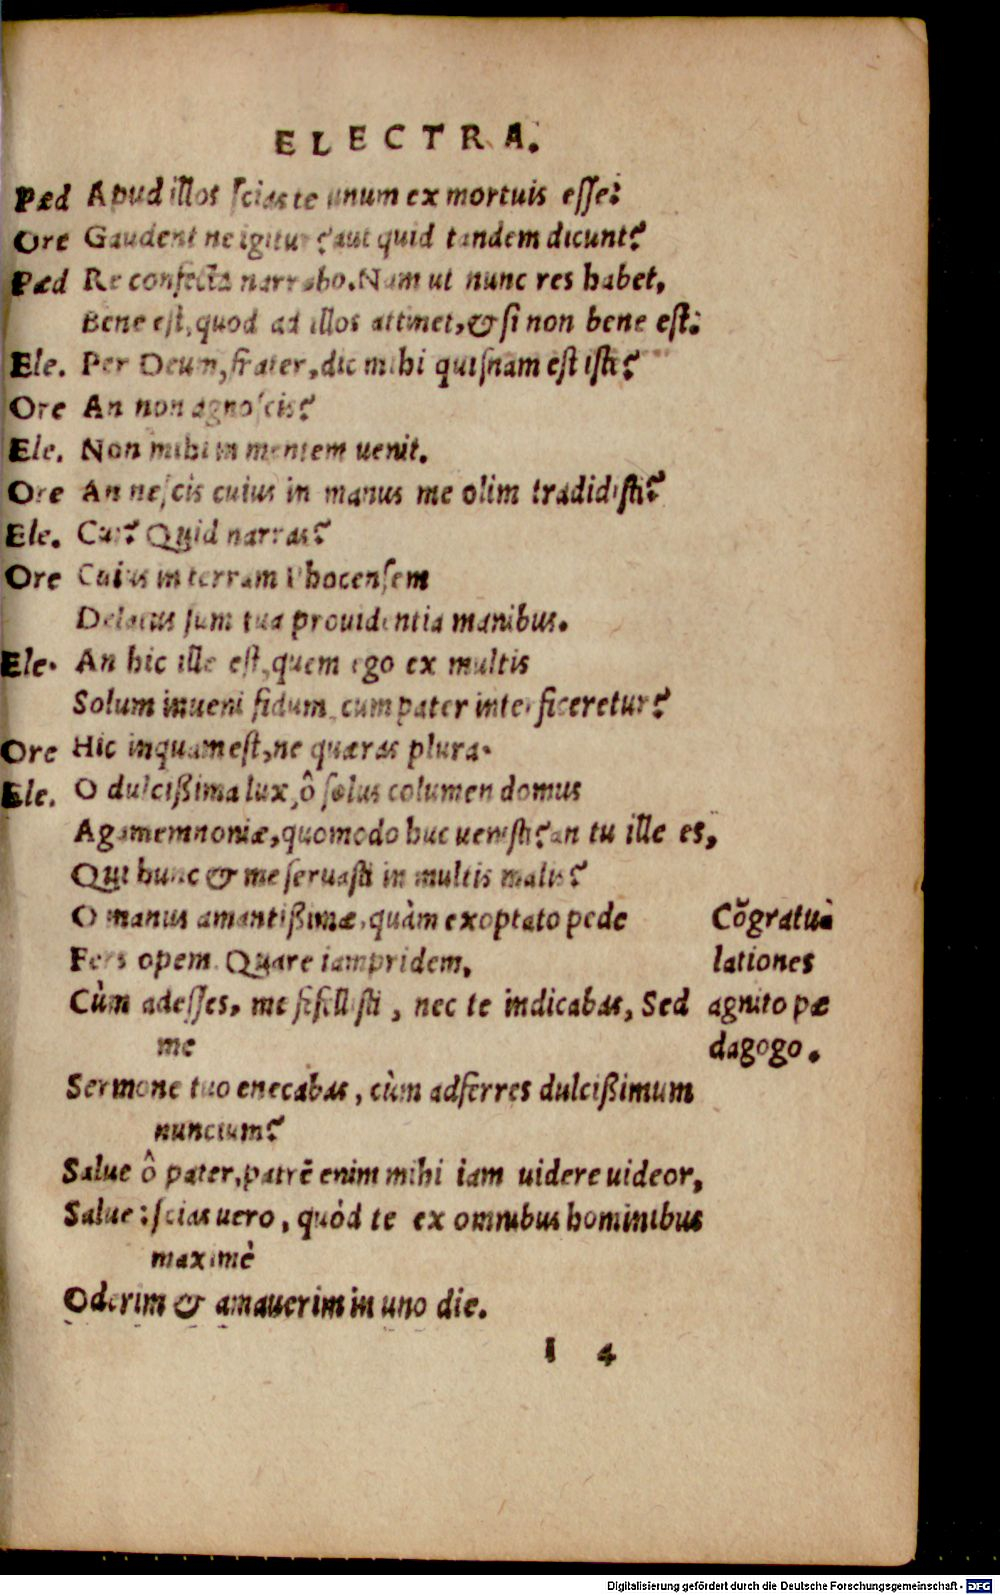 ELECTRA.
Pæd Apud illos scias te unum ex mortuis esse:
Ore Gaudent ne igitur? aut quid tandem dicunt?
Pæd Re confecta narrabo. Nam ut nunc res habet,
Bene est, quod ad illos attinet, & si non bene est:
Ele. Per Deum, frater, dic mihi quisnam est iste?
Ore An non agnoscis?
Ele. Non mihi in mentem uenit.
Ore An nescis cuius in manus me olim tradidisti?
Ele. Cui? Quid narras?
Ore Cuius in terram Phocensem
Delatus sum tua prouidentia manibus.
Ele. An hic ille est, quem ego ex multis
Solum inueni fidum, cum pater interficeretur?
Ore Hic inquam est, ne quæras plura.
Ele. O dulcißima lux, ô solus columen domus
Agamemnoniæ, quomodo huc uenisti? an tu ille es,
Qui hunc & me seruasti in multis malis?
O manus amantißimæ, quàm exoptato pede Cõgratu
Fers opem. Quare iampridem, lationes
Cùm adesses, me fefellisti, nec te indicabas, Sed agnito pæ
me dagogo.
Sermone tuo enecabas, cùm adferres dulcißimum
nuncium?
Salue ô pater, patrẽ enim mihi iam uidere uideor,
Salue: scias uero, quòd te ex omnibus hominibus
maximè
Oderim & amauerim in uno die.
I 4
Digitalisierung gefördert durch die Deutsche Forschungsgemeinschaft - DFG